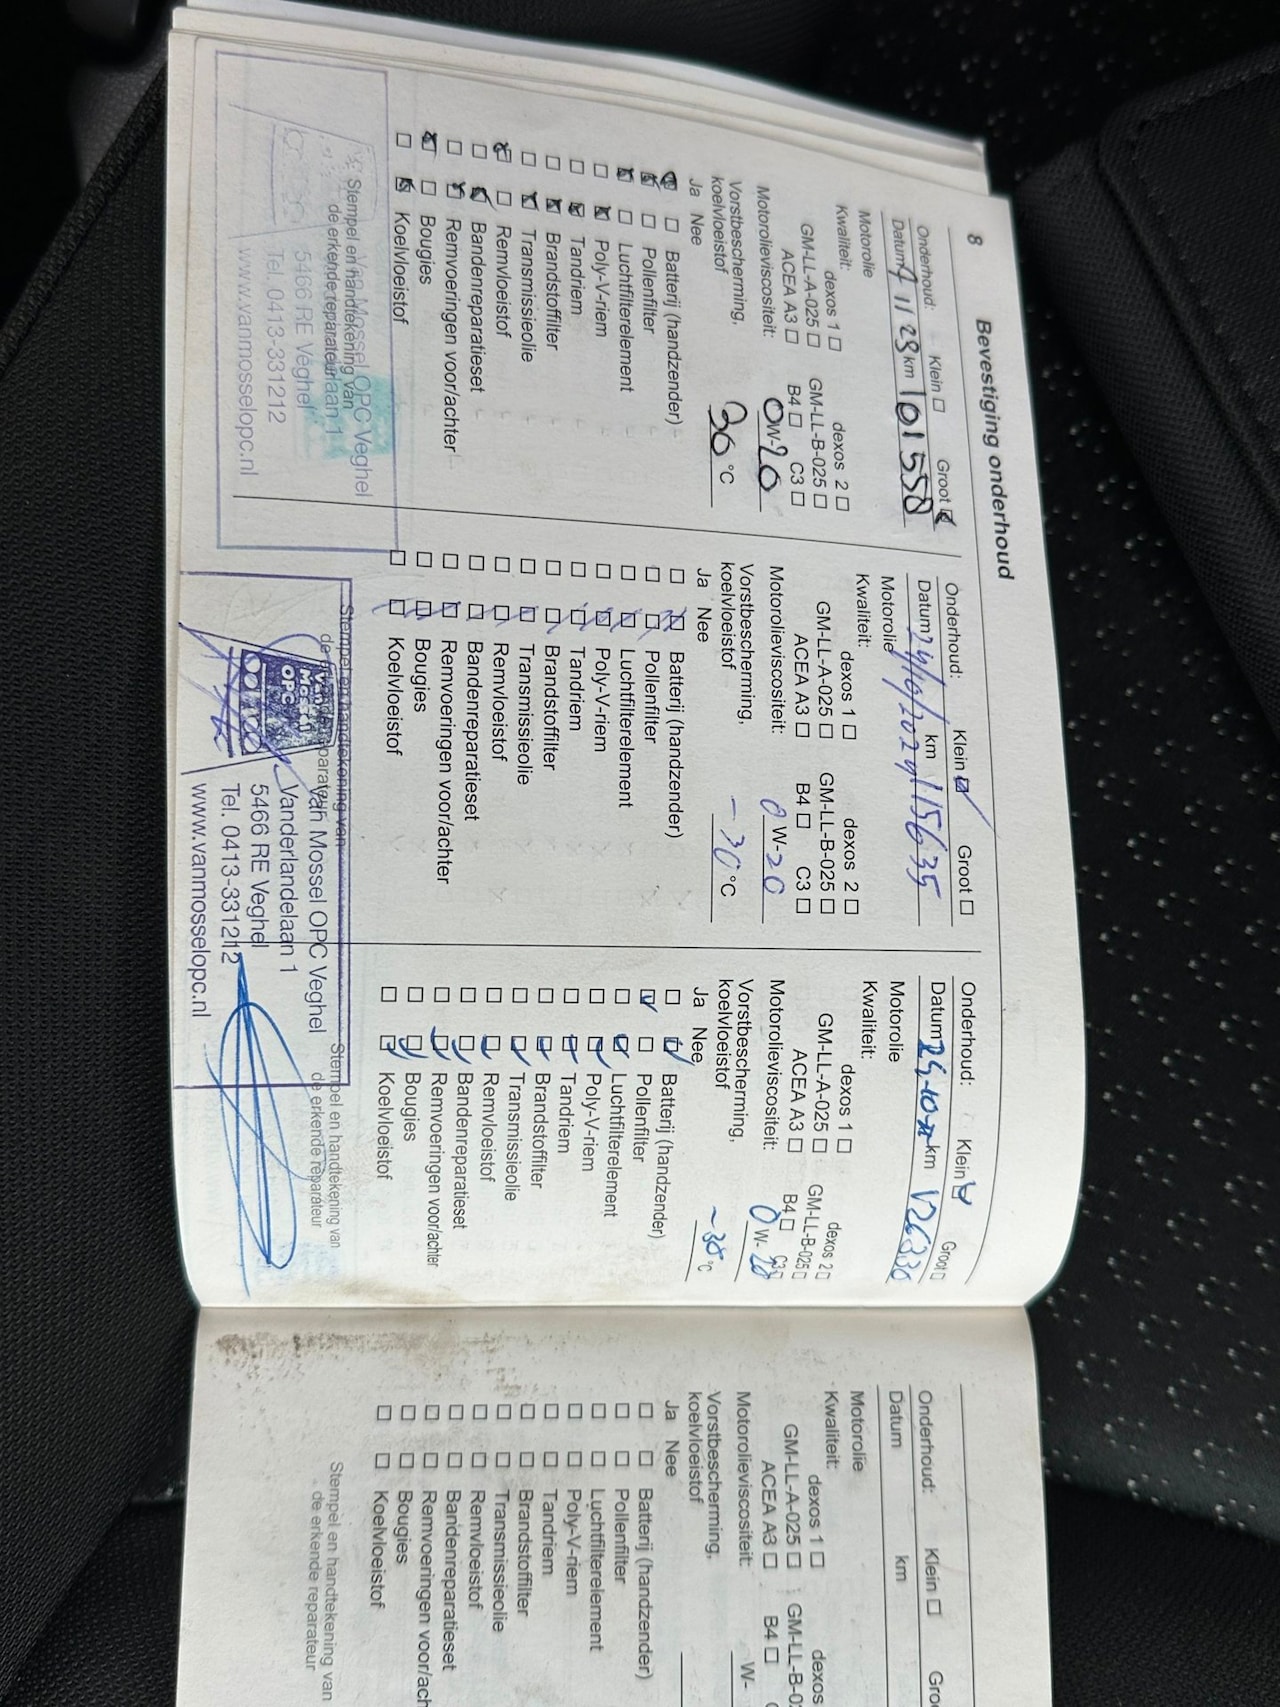 8
Bevestiging onderhoud
Onderhoud: Klein Groot
Datum 9 11 23 km 101558
Motorolie
Kwaliteit: dexos 1 dexos 2
GM-LL-A-025 GM-LL-B-025
ACEA A3 B4 C3
Motorolieviscositeit: 0W-20
Vorstbescherming,
koelvloeistof 30 °C
Ja Nee
Batterij (handzender)
Pollenfilter
Luchtfilterelement
Poly-V-riem
Tandriem
Brandstoffilter
Transmissieolie
Remvloeistof
Bandenreparatieset
Remvoeringen voor/achter
Bougies
Koelvloeistof
Stempel en handtekening van
de erkende reparateur
Van Mossel OPC Veghel
5466 RE Veghel
Tel. 0413-331212
www.vanmosselopc.nl
Onderhoud: Klein Groot
Datum 24/10/2024 km 115635
Motorolie
Kwaliteit: dexos 1 dexos 2
GM-LL-A-025 GM-LL-B-025
ACEA A3 B4 C3
Motorolieviscositeit: 0W-20
Vorstbescherming,
koelvloeistof -30 °C
Ja Nee
Batterij (handzender)
Pollenfilter
Luchtfilterelement
Poly-V-riem
Tandriem
Brandstoffilter
Transmissieolie
Remvloeistof
Bandenreparatieset
Remvoeringen voor/achter
Bougies
Koelvloeistof
Stempel en handtekening van
Van Mossel OPC
Van Mossel OPC Veghel
Vanderlandelaan 1
5466 RE Veghel
Tel. 0413-331212
www.vanmosselopc.nl
Onderhoud: Klein Groot
Datum km 126330
Motorolie
Kwaliteit: dexos 1 dexos 2
GM-LL-A-025 GM-LL-B-025
ACEA A3 B4 C3
Motorolieviscositeit: 0W-20
Vorstbescherming,
koelvloeistof °C
Ja Nee
Batterij (handzender)
Pollenfilter
Luchtfilterelement
Poly-V-riem
Tandriem
Brandstoffilter
Transmissieolie
Remvloeistof
Bandenreparatieset
Remvoeringen voor/achter
Bougies
Koelvloeistof
Stempel en handtekening van
de erkende reparateur
Onderhoud: Klein Groo
Datum km
Motorolie
Kwaliteit: dexos 1 dexos
GM-LL-A-025 GM-LL-B-02
ACEA A3 B4
Motorolieviscositeit: W-
Vorstbescherming,
koelvloeistof
Ja Nee
Batterij (handzender)
Pollenfilter
Luchtfilterelement
Poly-V-riem
Tandriem
Brandstoffilter
Transmissieolie
Remvloeistof
Bandenreparatieset
Remvoeringen voor/ach
Bougies
Koelvloeistof
Stempel en handtekening van
de erkende reparateur